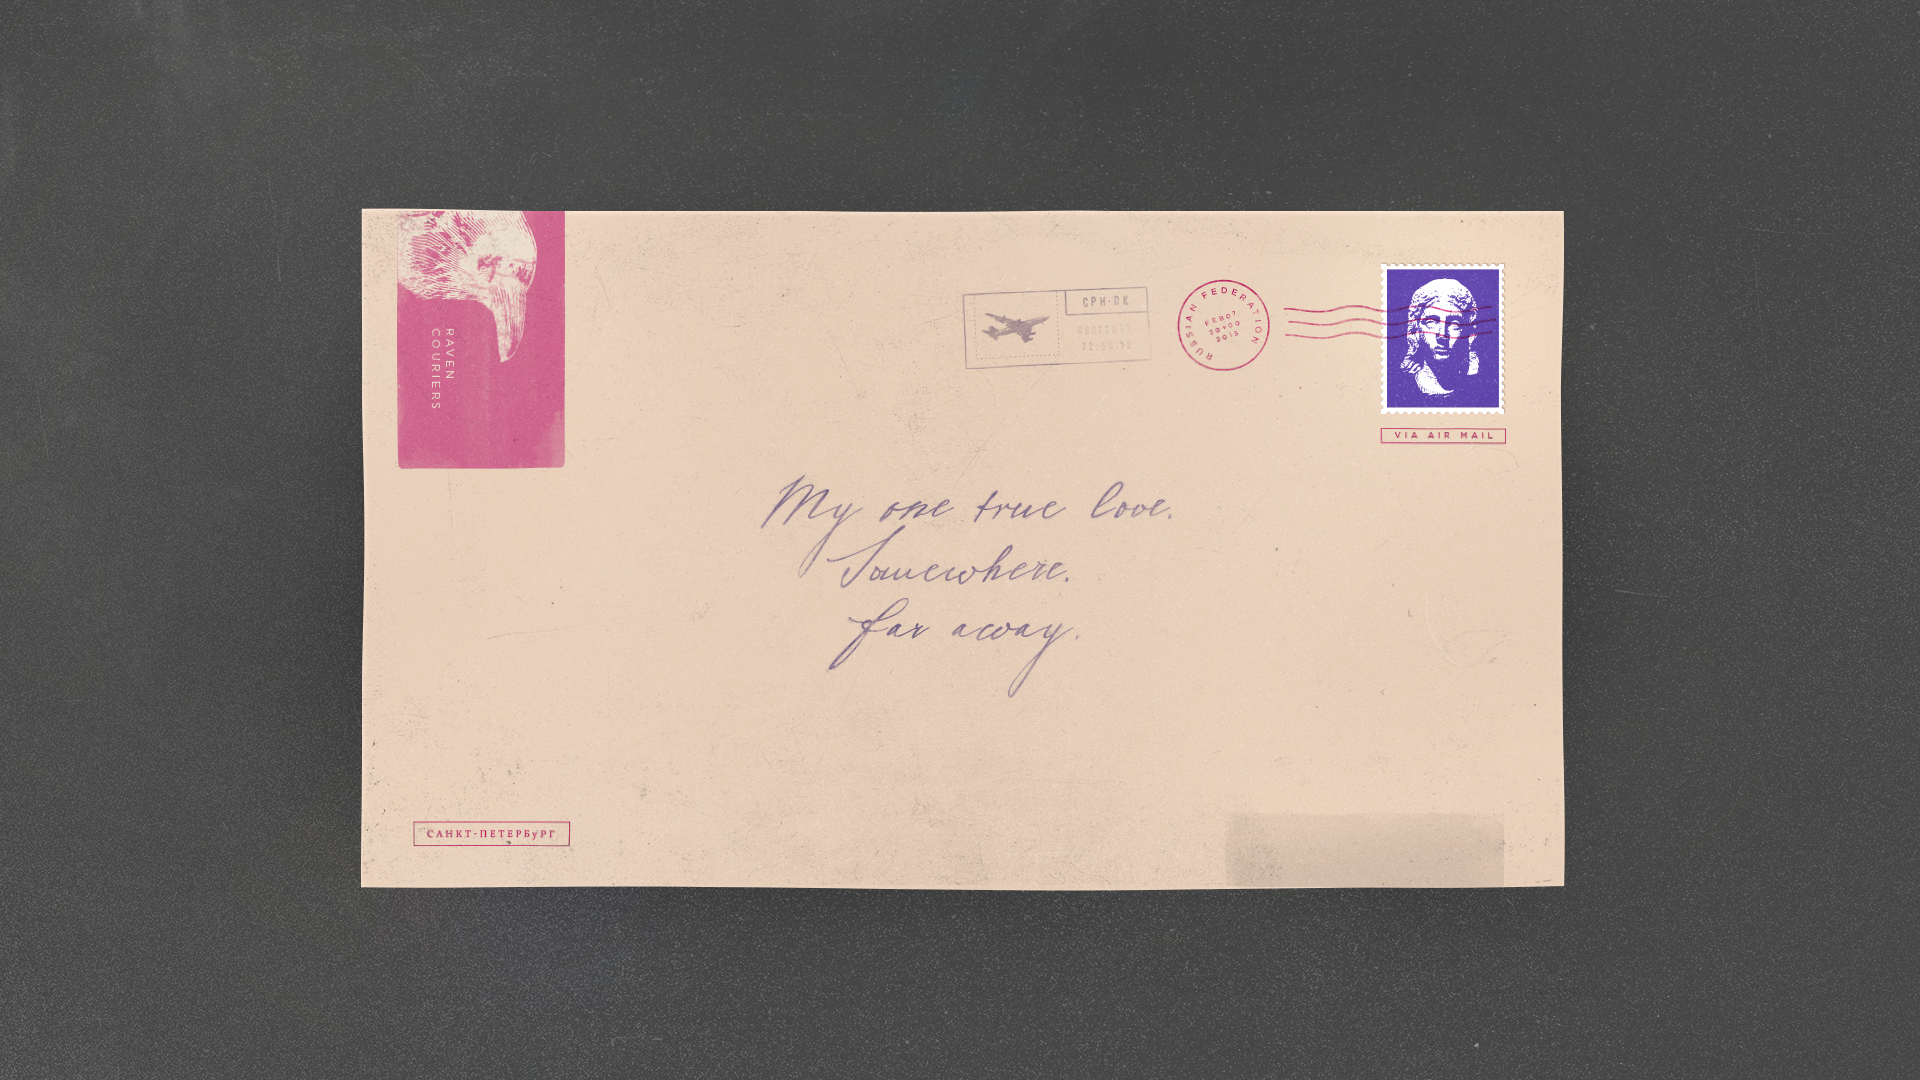 RAVEN
COURIERS
CPH-DK
RUSSIAN FEDERATION
FEB07
2015
VIA AIR MAIL
My one true love.
Somewhere.
far away.
САНКТ-ПЕТЕРБуРГ